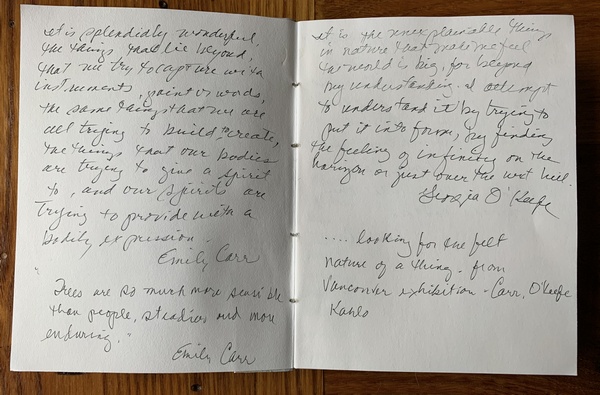 it is splendidly wonderful,
the things that lie beyond,
that we try to capture with
instruments, paint or words,
the same things that we are
all trying to build, create,
the things that our bodies
are trying to give a spirit
to, and our spirits are
trying to provide with a
bodily expression.
Emily Carr
"Trees are so much more sensible
than people, steadier and more
enduring."
Emily Carr
it is the unexplainable things
in nature that make me feel
the world is big, far beyond
my understanding. I attempt
to understand it by trying to
put it into form, by finding
the feeling of infinity on the
horizon or just over the next hill.
Georgia O'Keefe
.... looking for the felt
nature of a thing. from
Vancouver exhibition - Carr, O'Keefe
Kahlo